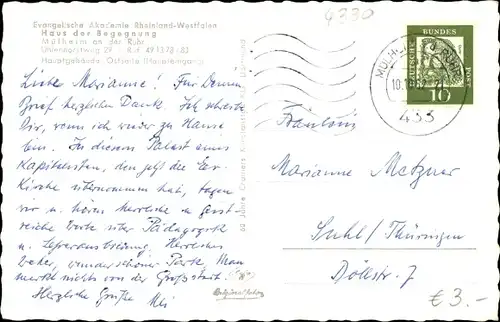 4330
Evangelische Akademie Rheinland-Westfalen
Haus der Begegnung
Mülheim an der Ruhr
Uhlenhorstweg 29 · Ruf 49 13 78 / 83
Hauptgebäude, Ostseite (Haupteingang)
DEUTSCHE BUNDES POST
10
433
Liebe Marianne! Für Deinen
Brief herzlichen Dank. Ich schreibe
Dir, wenn ich wieder zu Hause
bin. In diesem Palast eines
Kapitalisten, den jetzt die Ev.
Kirche übernommen hat, tagen
wir u. hören herrliche u. geist-
reiche Worte über Pädagogik
u. Lehrerausbildung. Herrliches
Wetter, wunderschöner Park. Man
merkt nichts von der Großstadt.
Herzliche Grüße
Fräulein
Marianne Metzner
Suhl/Thüringen
Döllstr. 7
60 Jahre Cramers Kunstanstalt
Originalfoto
€ 3.-